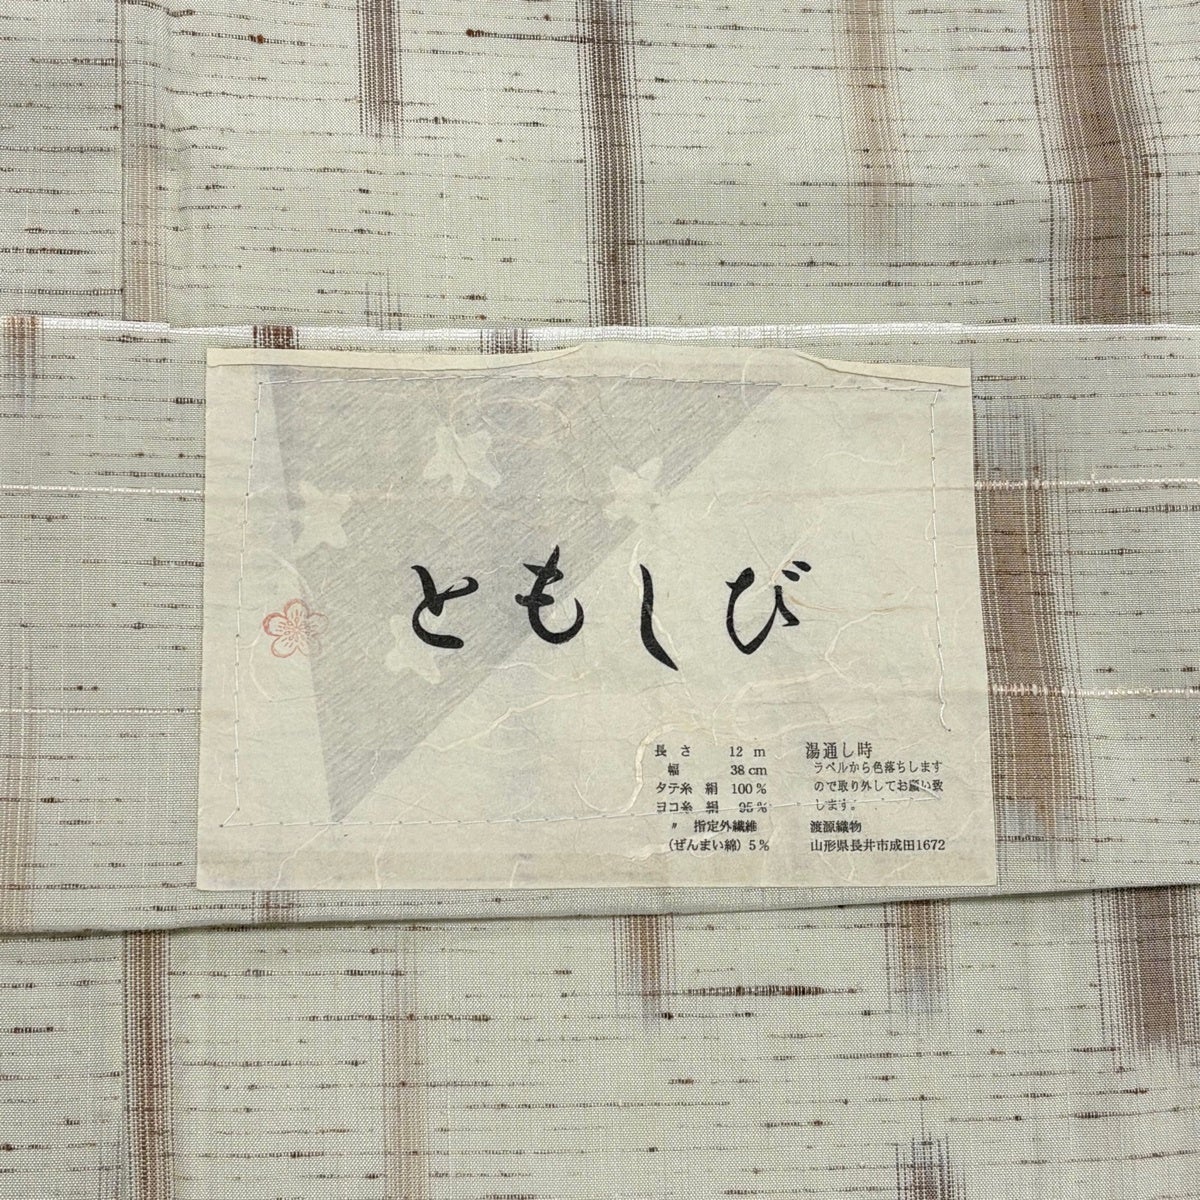 ともしび
長さ 12 m
幅 38 cm
タテ糸 絹 100%
ヨコ糸 絹 95%
〃 指定外繊維
(ぜんまい綿) 5%
湯通し時
ラベルから色落ちします
ので取り外してお願い致
します。
渡源織物
山形県長井市成田1672